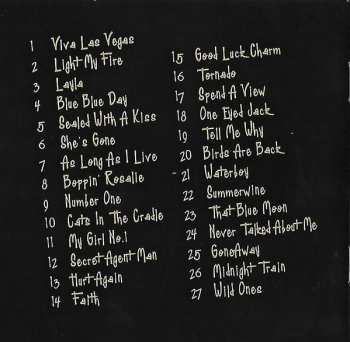 1 Viva Las Vegas
2 Light My Fire
3 Layla
4 Blue Blue Day
5 Sealed With A Kiss
6 She's Gone
7 As Long As I Live
8 Boppin' Rosalie
9 Number One
10 Cats In The Cradle
11 My Girl No.1
12 Secret Agent Man
13 Hurt Again
14 Faith
15 Good Luck Charm
16 Tornado
17 Spend A View
18 One Eyed Jack
19 Tell Me Why
20 Birds Are Back
21 Waterboy
22 Summerwine
23 That Blue Moon
24 Never Talked About Me
25 GoneAway
26 Midnight Train
27 Wild Ones